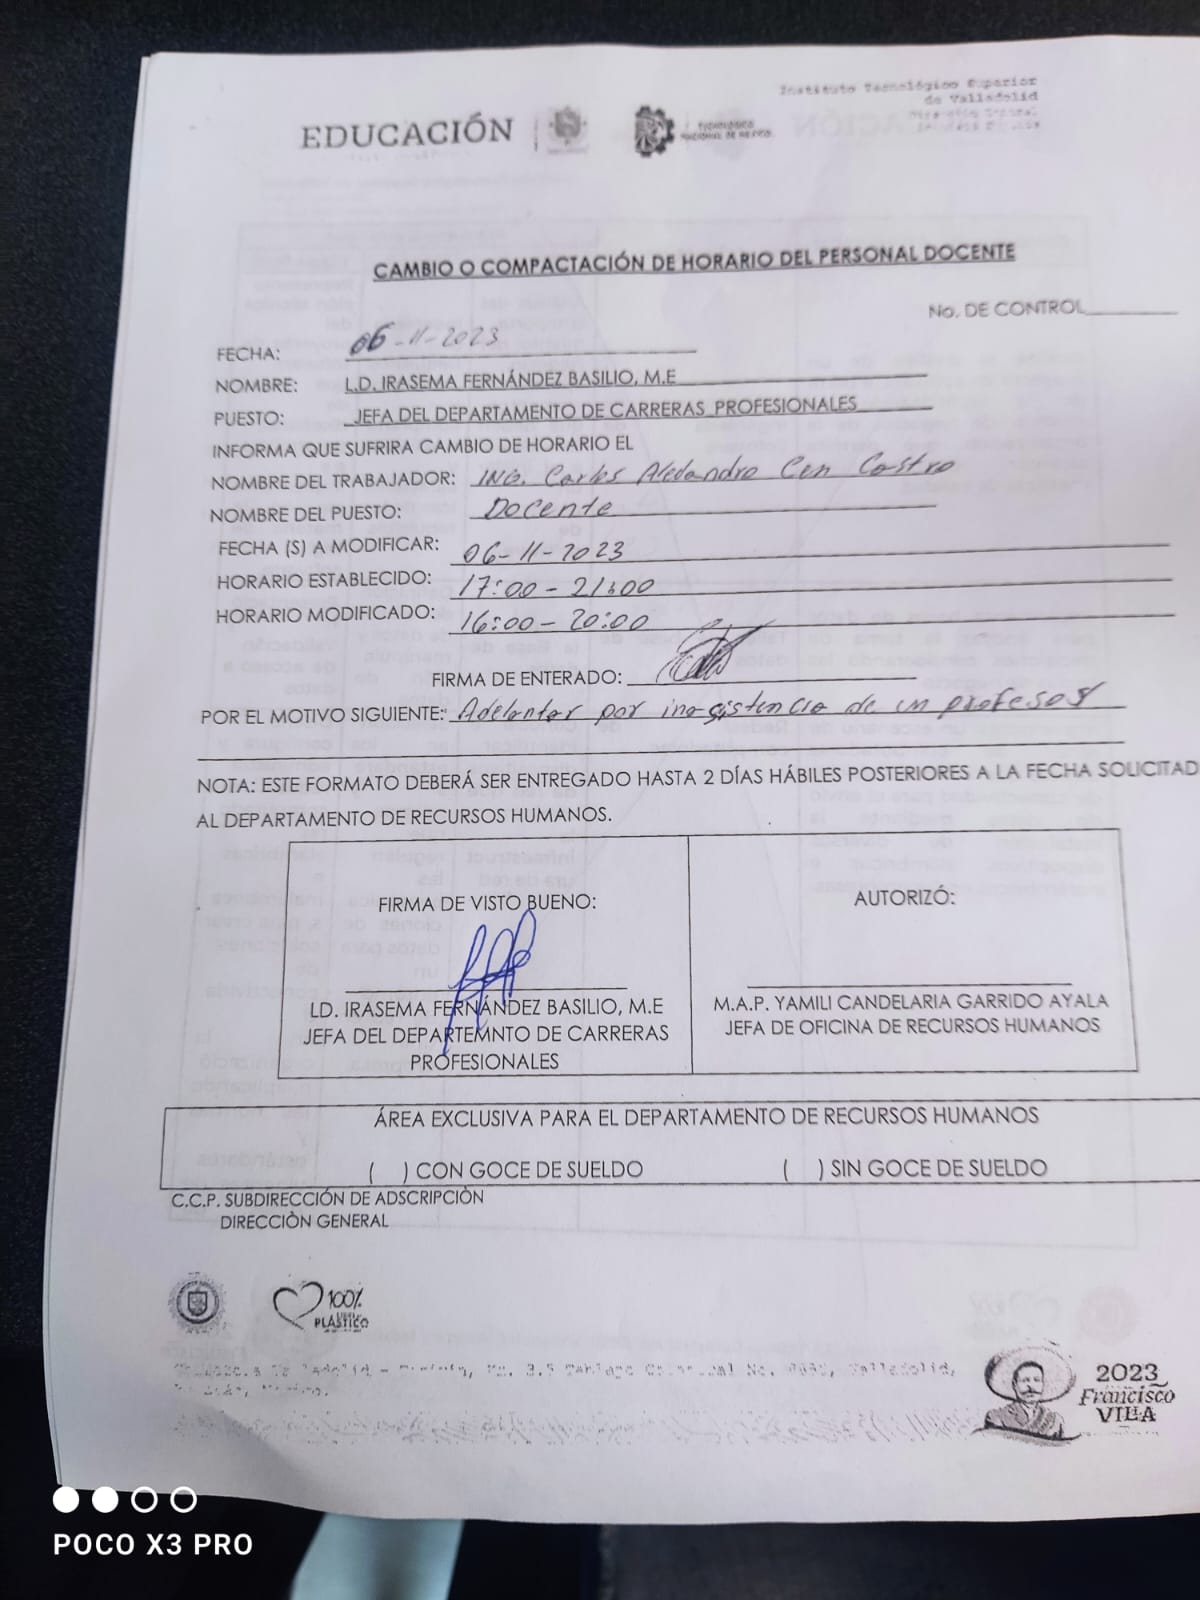 Instituto Tecnológico Superior
de Valladolid
Dirección General
EDUCACIÓN
TECNOLÓGICO
NACIONAL DE MÉXICO
CAMBIO O COMPACTACIÓN DE HORARIO DEL PERSONAL DOCENTE
No. DE CONTROL
FECHA: 06-11-2023
NOMBRE: L.D. IRASEMA FERNÁNDEZ BASILIO, M.E
PUESTO: JEFA DEL DEPARTAMENTO DE CARRERAS PROFESIONALES
INFORMA QUE SUFRIRA CAMBIO DE HORARIO EL
NOMBRE DEL TRABAJADOR: ING. Carlos Alejandro Cen Castro
NOMBRE DEL PUESTO: Docente
FECHA (S) A MODIFICAR: 06-11-2023
HORARIO ESTABLECIDO: 17:00 - 21:00
HORARIO MODIFICADO: 16:00 - 20:00
FIRMA DE ENTERADO:
POR EL MOTIVO SIGUIENTE: Adelantar por inasistencia de un profesor
NOTA: ESTE FORMATO DEBERÁ SER ENTREGADO HASTA 2 DÍAS HÁBILES POSTERIORES A LA FECHA SOLICITAD
AL DEPARTAMENTO DE RECURSOS HUMANOS.
FIRMA DE VISTO BUENO:
LD. IRASEMA FERNÁNDEZ BASILIO, M.E
JEFA DEL DEPARTEMNTO DE CARRERAS
PROFESIONALES
AUTORIZÓ:
M.A.P. YAMILI CANDELARIA GARRIDO AYALA
JEFA DE OFICINA DE RECURSOS HUMANOS
ÁREA EXCLUSIVA PARA EL DEPARTAMENTO DE RECURSOS HUMANOS
( ) CON GOCE DE SUELDO ( ) SIN GOCE DE SUELDO
C.C.P. SUBDIRECCIÓN DE ADSCRIPCIÒN
DIRECCIÒN GENERAL
100%
PLÁSTICO
Valladolid,
2023
Francisco
VILLA
POCO X3 PRO